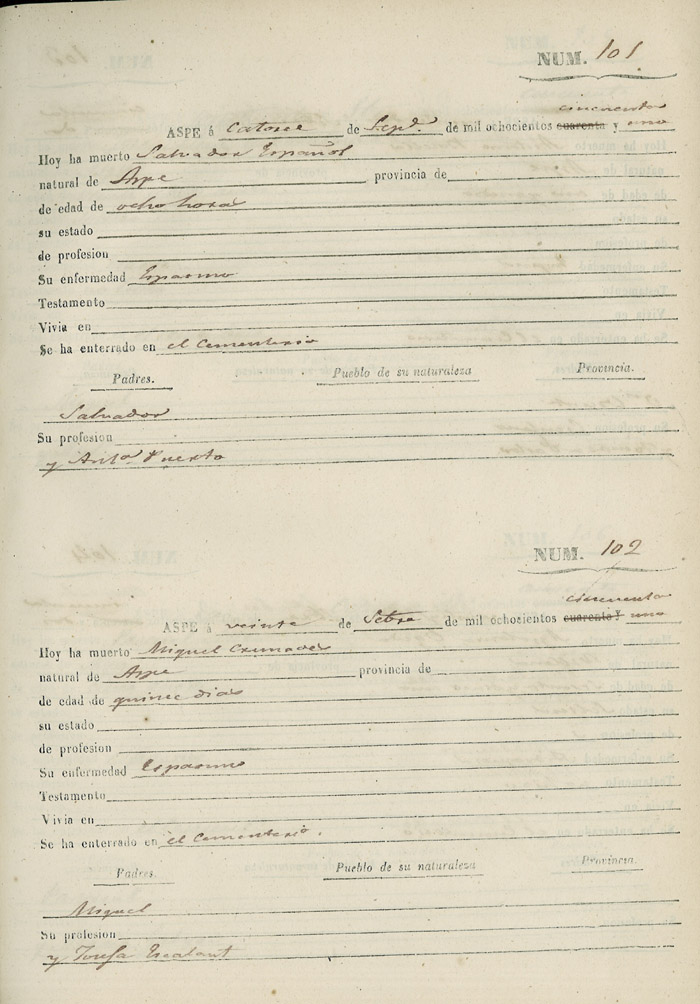 NUM. 101
cincuenta
ASPE á Catorce de Sepe. de mil ochocientos cuarenta y uno
Hoy ha muerto Salvador Español
natural de Aspe provincia de
de edad de ocho horas
su estado
de profesion
Su enfermedad Espasmo
Testamento
Vivia en
Se ha enterrado en el Cementerio
Padres. Pueblo de su naturaleza Provincia.
Salvador
Su profesion
y Anta. Puerto
NUM. 102
cincuenta
ASPE á veinte de Setbre de mil ochocientos cuarenta y uno
Hoy ha muerto Miquel
natural de Aspe provincia de
de edad de quince dias
su estado
de profesion
Su enfermedad Espasmo
Testamento
Vivia en
Se ha enterrado en el Cementerio.
Padres. Pueblo de su naturaleza Provincia.
Miquel
Su profesion
y Josefa Escalant